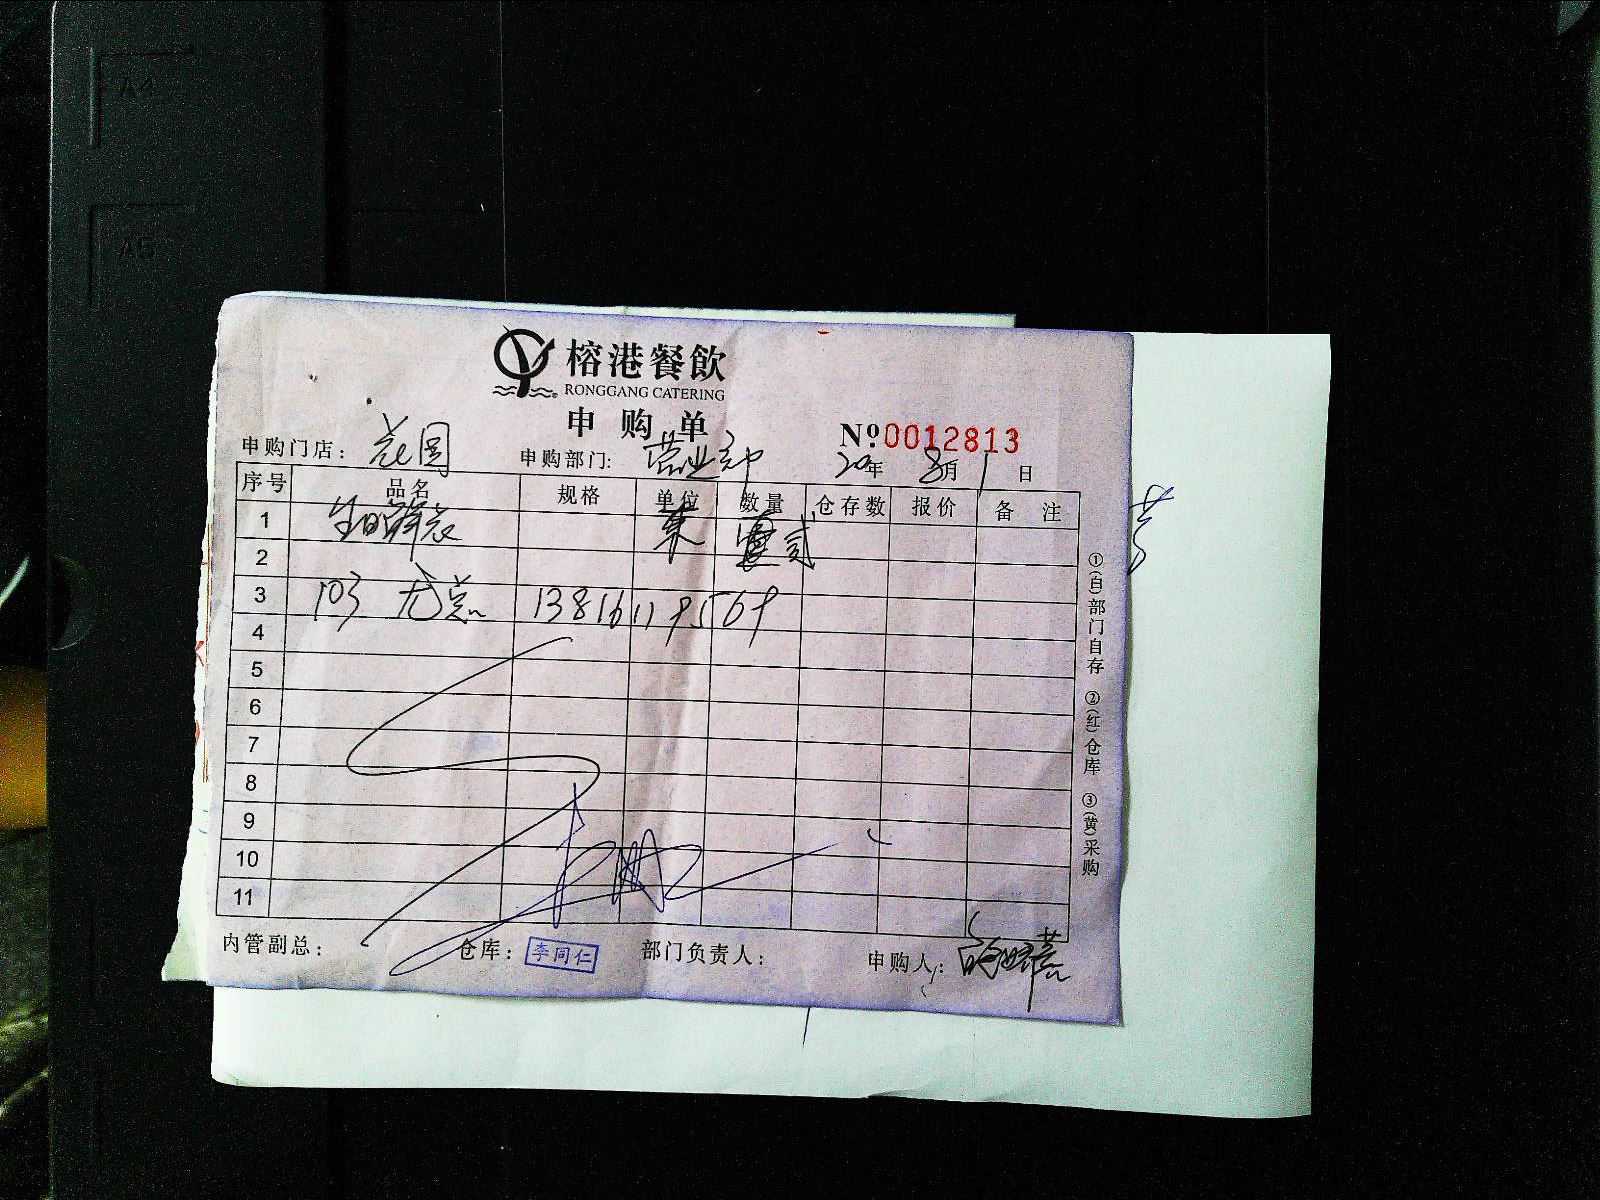 A4
A5
榕港餐飲
RONGGANG CATERING
申购单
No 0012813
申购门店: 花园 申购部门: 营业部 20年 8月 1日
序号 品名 规格 单位 数量 仓存数 报价 备注
1 生日 束 贰
2
3 103 尤总 13816119569
4
5
6
7
8
9
10
11
①(白)部门自存 ②(红)仓库 ③(黄)采购
内管副总: 仓库: 李同仁 部门负责人: 申购人: